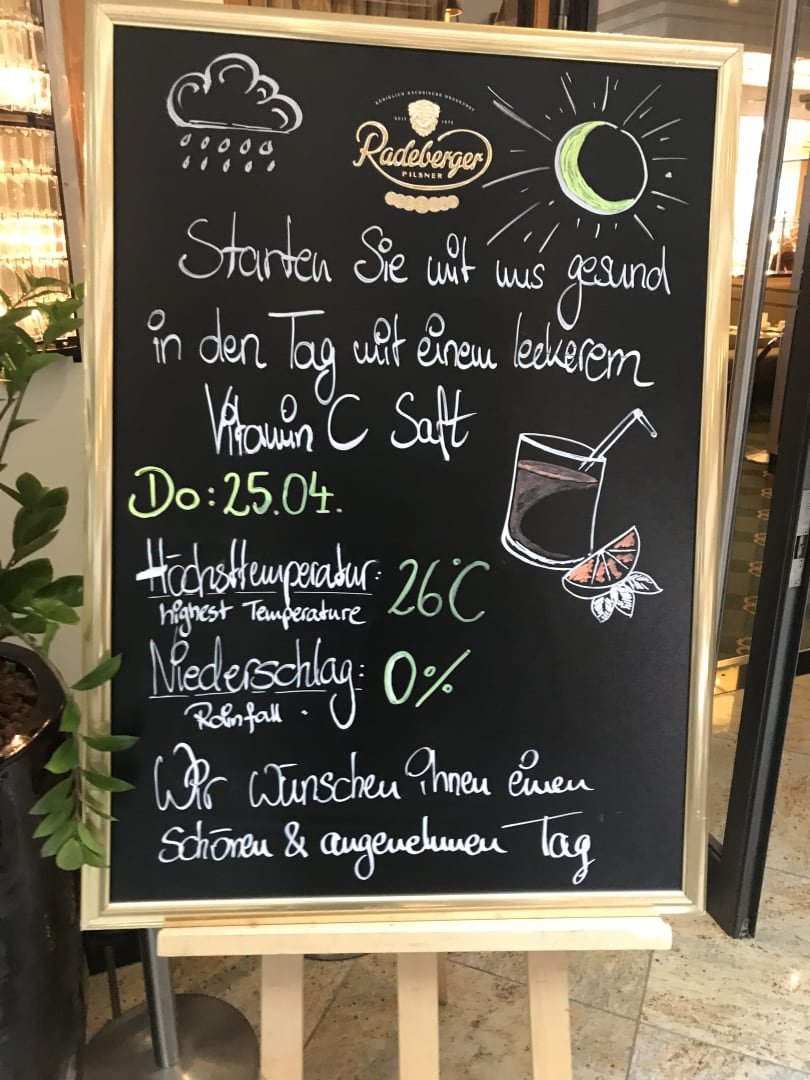 Radeberger
PILSNER
Starten Sie mit uns gesund
in den Tag mit einem leckerem
Vitamin C Saft
Do: 25.04.
Höchsttemperatur: 26°C
highest Temperature
Niederschlag: 0%
Rainfall
Wir wünschen Ihnen einen
schönen & angenehmen Tag